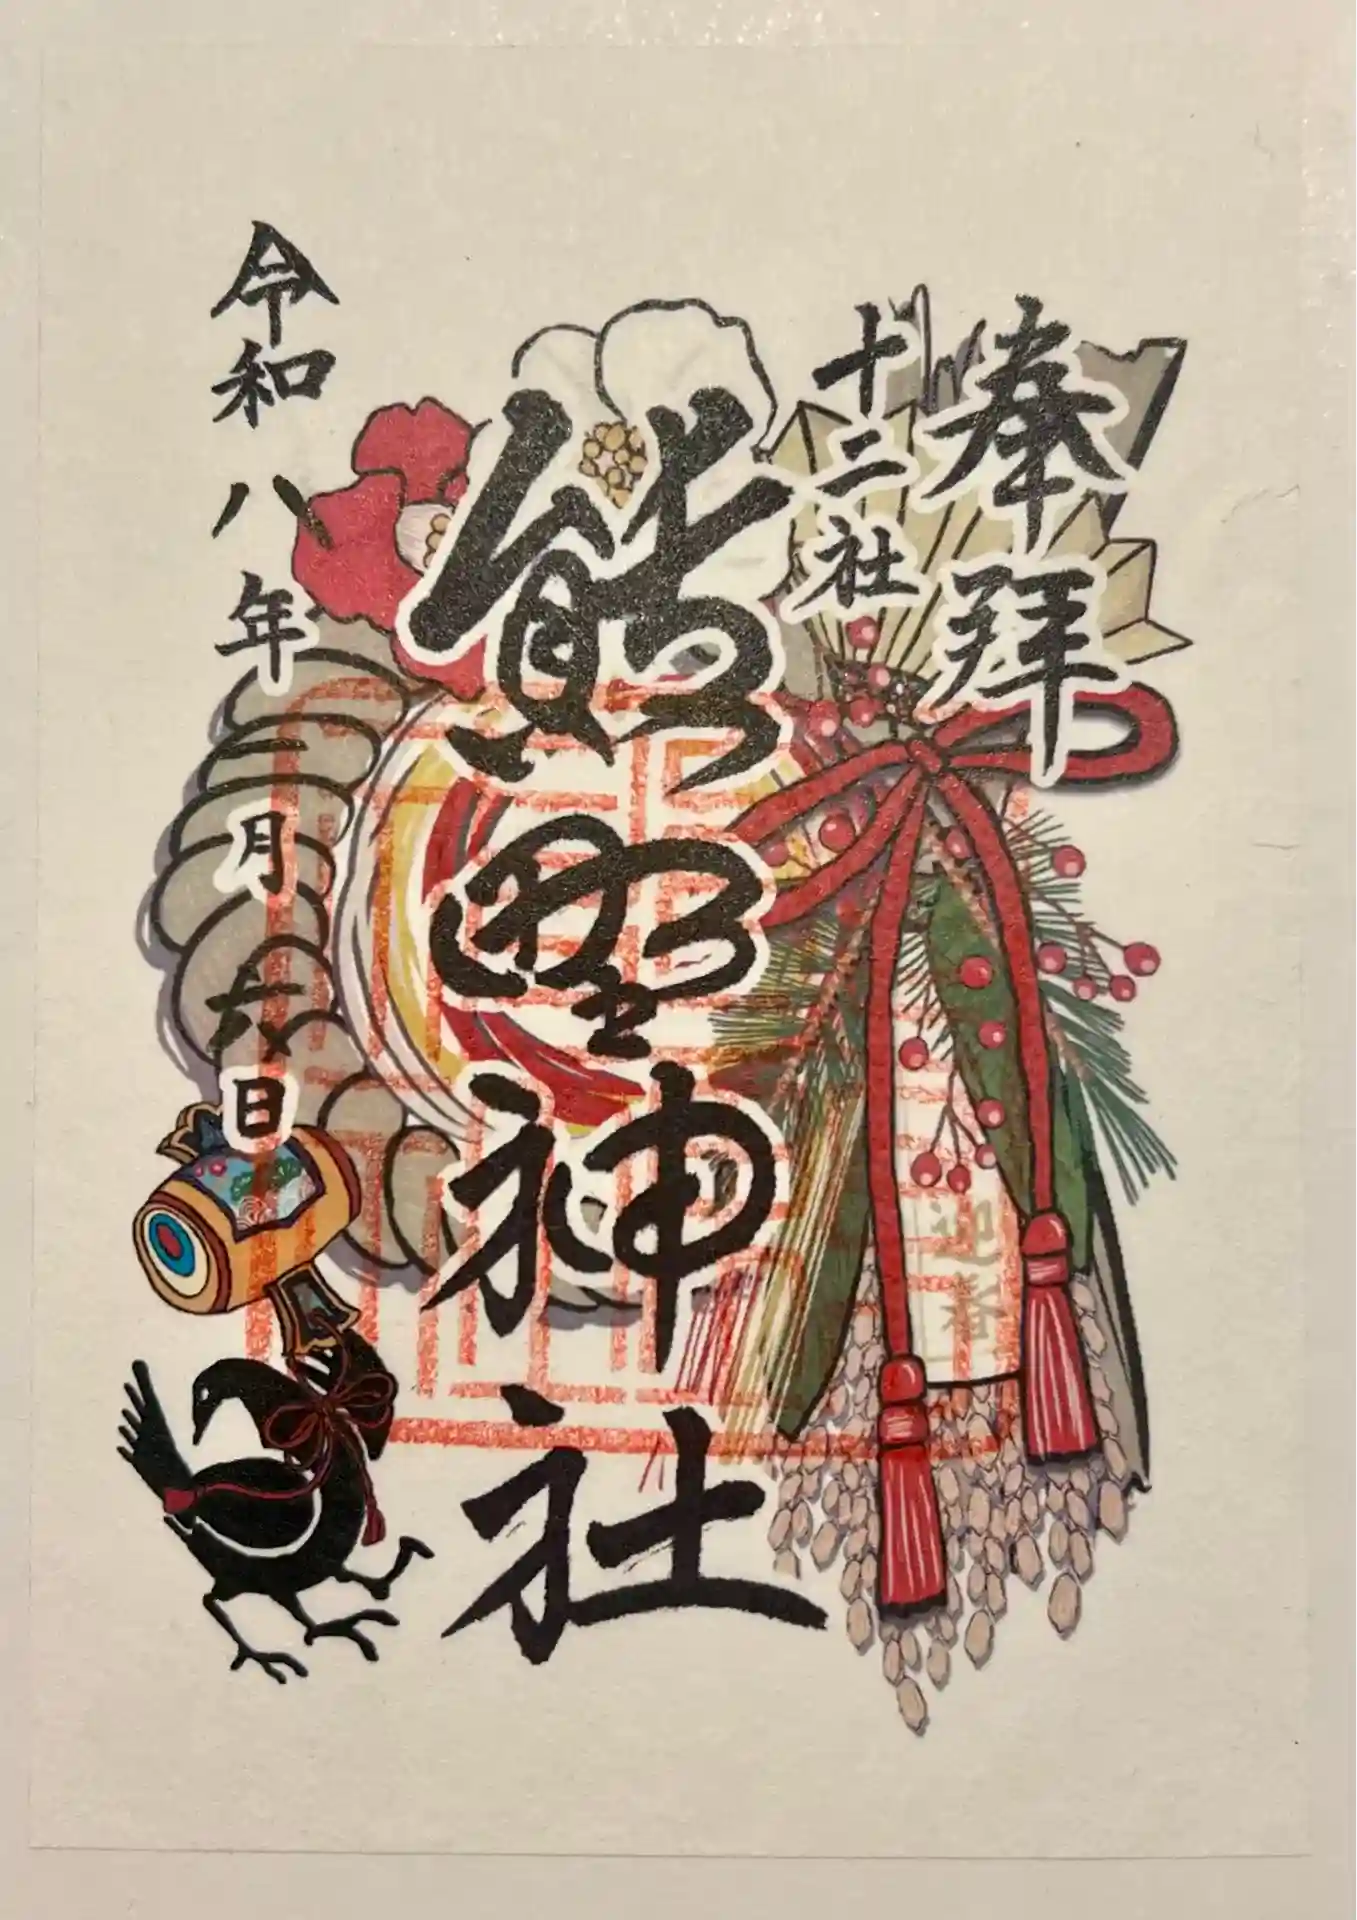 奉拝
十二社
熊野神社
令和八年一月六日
迎春